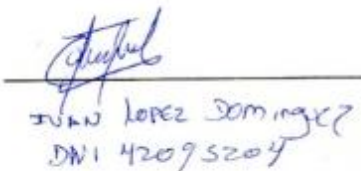 JUAN LOPEZ DOMINGUEZ
DNI 42095204